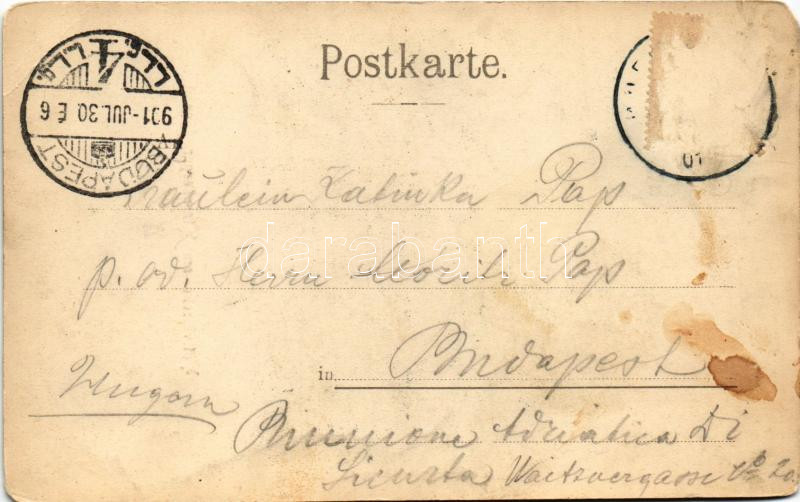 Postkarte.
BUDAPEST
901-JUL.30. É 6
01
Fräulein Katinka Pap
p. ad. Herrn Moritz Pap
in Budapest
Ungarn
Riunione Adriatica Di
Sicurta Waitznergasse No 20
darabanth